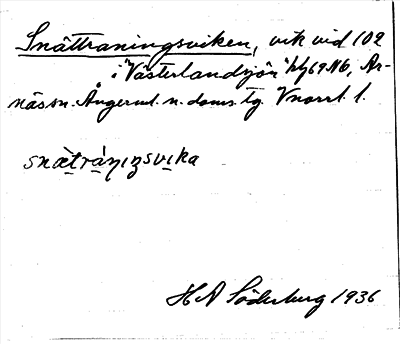 Snättraningsviken, vik vid 102
i "Västerlandsjön" blg 69 Nb, Ar-
näs sn. Ångerml. n. doms. tg. Vnorrl. l.
snætráŋıŋsvıka
H A Söderberg 1936